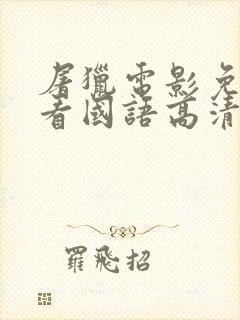 屠獵電影免
看國語高清
羅飛招